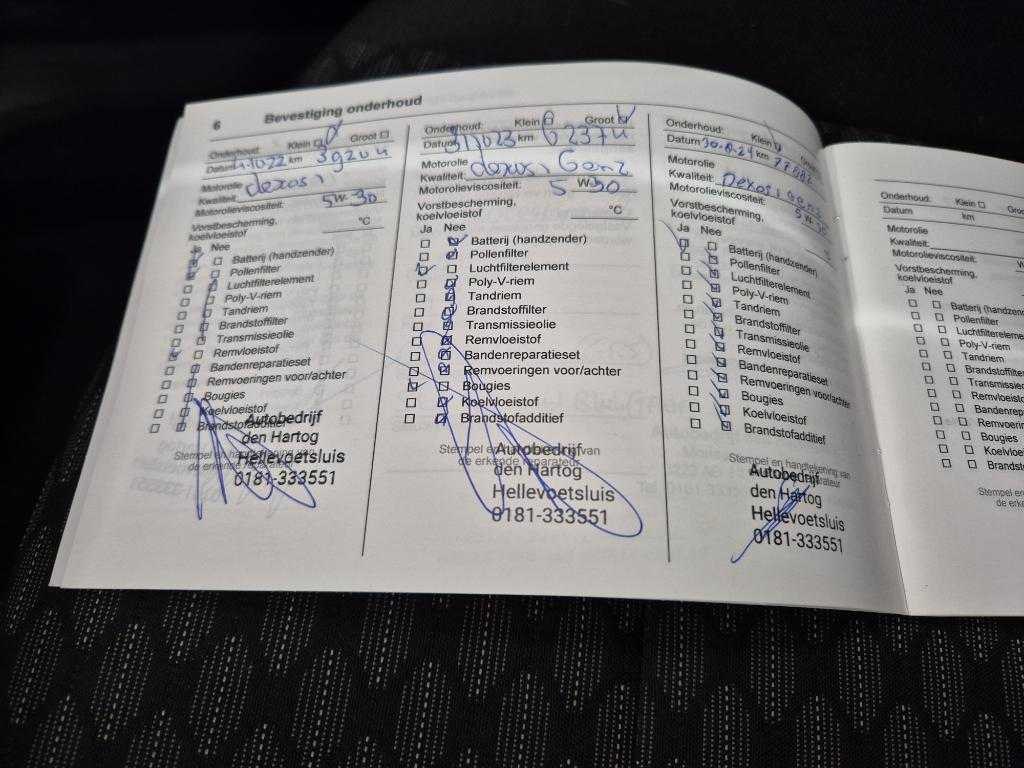 6 Bevestiging onderhoud
Onderhoud: Klein Groot
Datum km
Motorolie dexos 1
Kwaliteit
Motorolieviscositeit: 5 W 30
Vorstbescherming,
koelvloeistof °C
Ja Nee
Batterij (handzender)
Pollenfilter
Luchtfilterelement
Poly-V-riem
Tandriem
Brandstoffilter
Transmissieolie
Remvloeistof
Bandenreparatieset
Remvoeringen voor/achter
Bougies
Koelvloeistof
Brandstofadditief
Stempel en
de erkende reparateur
Autobedrijf
den Hartog
Hellevoetsluis
0181-333551
Onderhoud: Klein Groot
Datum km
Motorolie
Kwaliteit: dexos 1 Gen 2
Motorolieviscositeit: 5 W 30
Vorstbescherming,
koelvloeistof °C
Ja Nee
Batterij (handzender)
Pollenfilter
Luchtfilterelement
Poly-V-riem
Tandriem
Brandstoffilter
Transmissieolie
Remvloeistof
Bandenreparatieset
Remvoeringen voor/achter
Bougies
Koelvloeistof
Brandstofadditief
Stempel en van
de erkende reparateur
Autobedrijf
den Hartog
Hellevoetsluis
0181-333551
Onderhoud: Klein
Datum km
Motorolie
Kwaliteit: Dexos 1
Motorolieviscositeit: 5 W 30
Vorstbescherming,
koelvloeistof
Ja Nee
Batterij (handzender)
Pollenfilter
Luchtfilterelement
Poly-V-riem
Tandriem
Brandstoffilter
Transmissieolie
Remvloeistof
Bandenreparatieset
Remvoeringen voor/achter
Bougies
Koelvloeistof
Brandstofadditief
Stempel en handtekening van
Autobedrijf
den Hartog
Hellevoetsluis
0181-333551
Onderhoud: Klein
Datum km
Motorolie
Kwaliteit:
Motorolieviscositeit:
Vorstbescherming,
koelvloeistof
Ja Nee
Batterij (handzen
Pollenfilter
Luchtfilterelem
Poly-V-riem
Tandriem
Brandstoffilter
Transmissi
Remvloeist
Bandenrepa
Remvoerin
Bougies
Koelvloei
Brandst
Stempel en
de erke